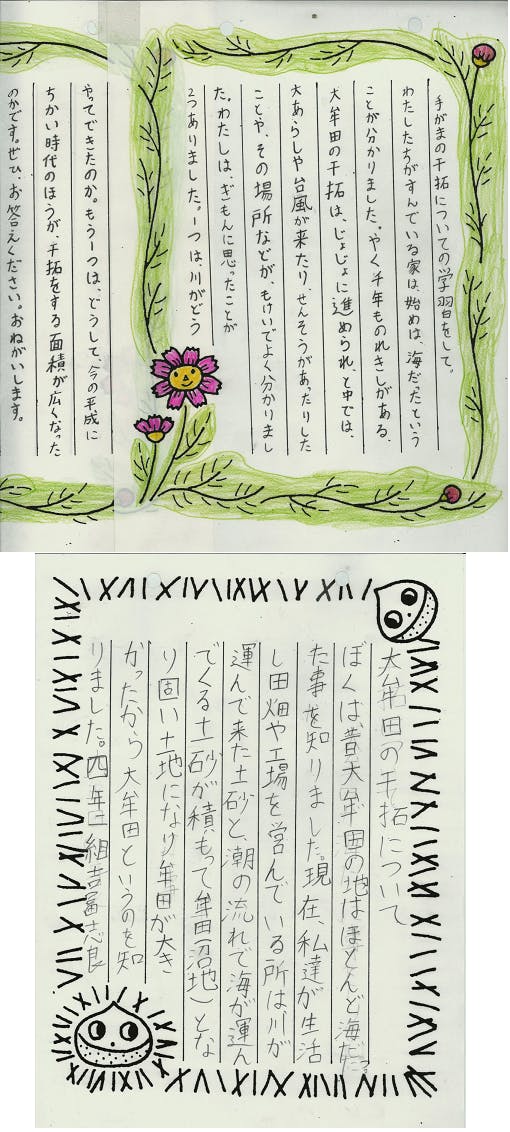 手がまの干拓についての学習をして。
わたしたちがすんでいる家は、始めは、海だったという
ことが分かりました。やく千年ものれきしがある、
大牟田の干拓は、じょじょに進められ、と中では、
大あらしや台風が来たり、せんそうがあったりした
ことや、その場所などが、もけいでよく分かりまし
た。わたしは、ぎもんに思ったことが
2つありました。一つは、川がどう
やってできたのか。もう一つは、どうして、今の平成に
ちかい時代のほうが、干拓をする面積が広くなった
のかです。ぜひ、お答えください。おねがいします。
大牟田の干拓について
ぼくは、昔大牟田の地はほとんど海だっ
た事を知りました。現在、私達が生活
し田畑や工場を営んでいる所は川が
運んで来た土砂と、潮の流れで海が運ん
でくる土砂が積もって牟田(沼地)とな
り固い土地になり牟田が大き
かったから大牟田というのを知
りました。四年一組吉冨志良